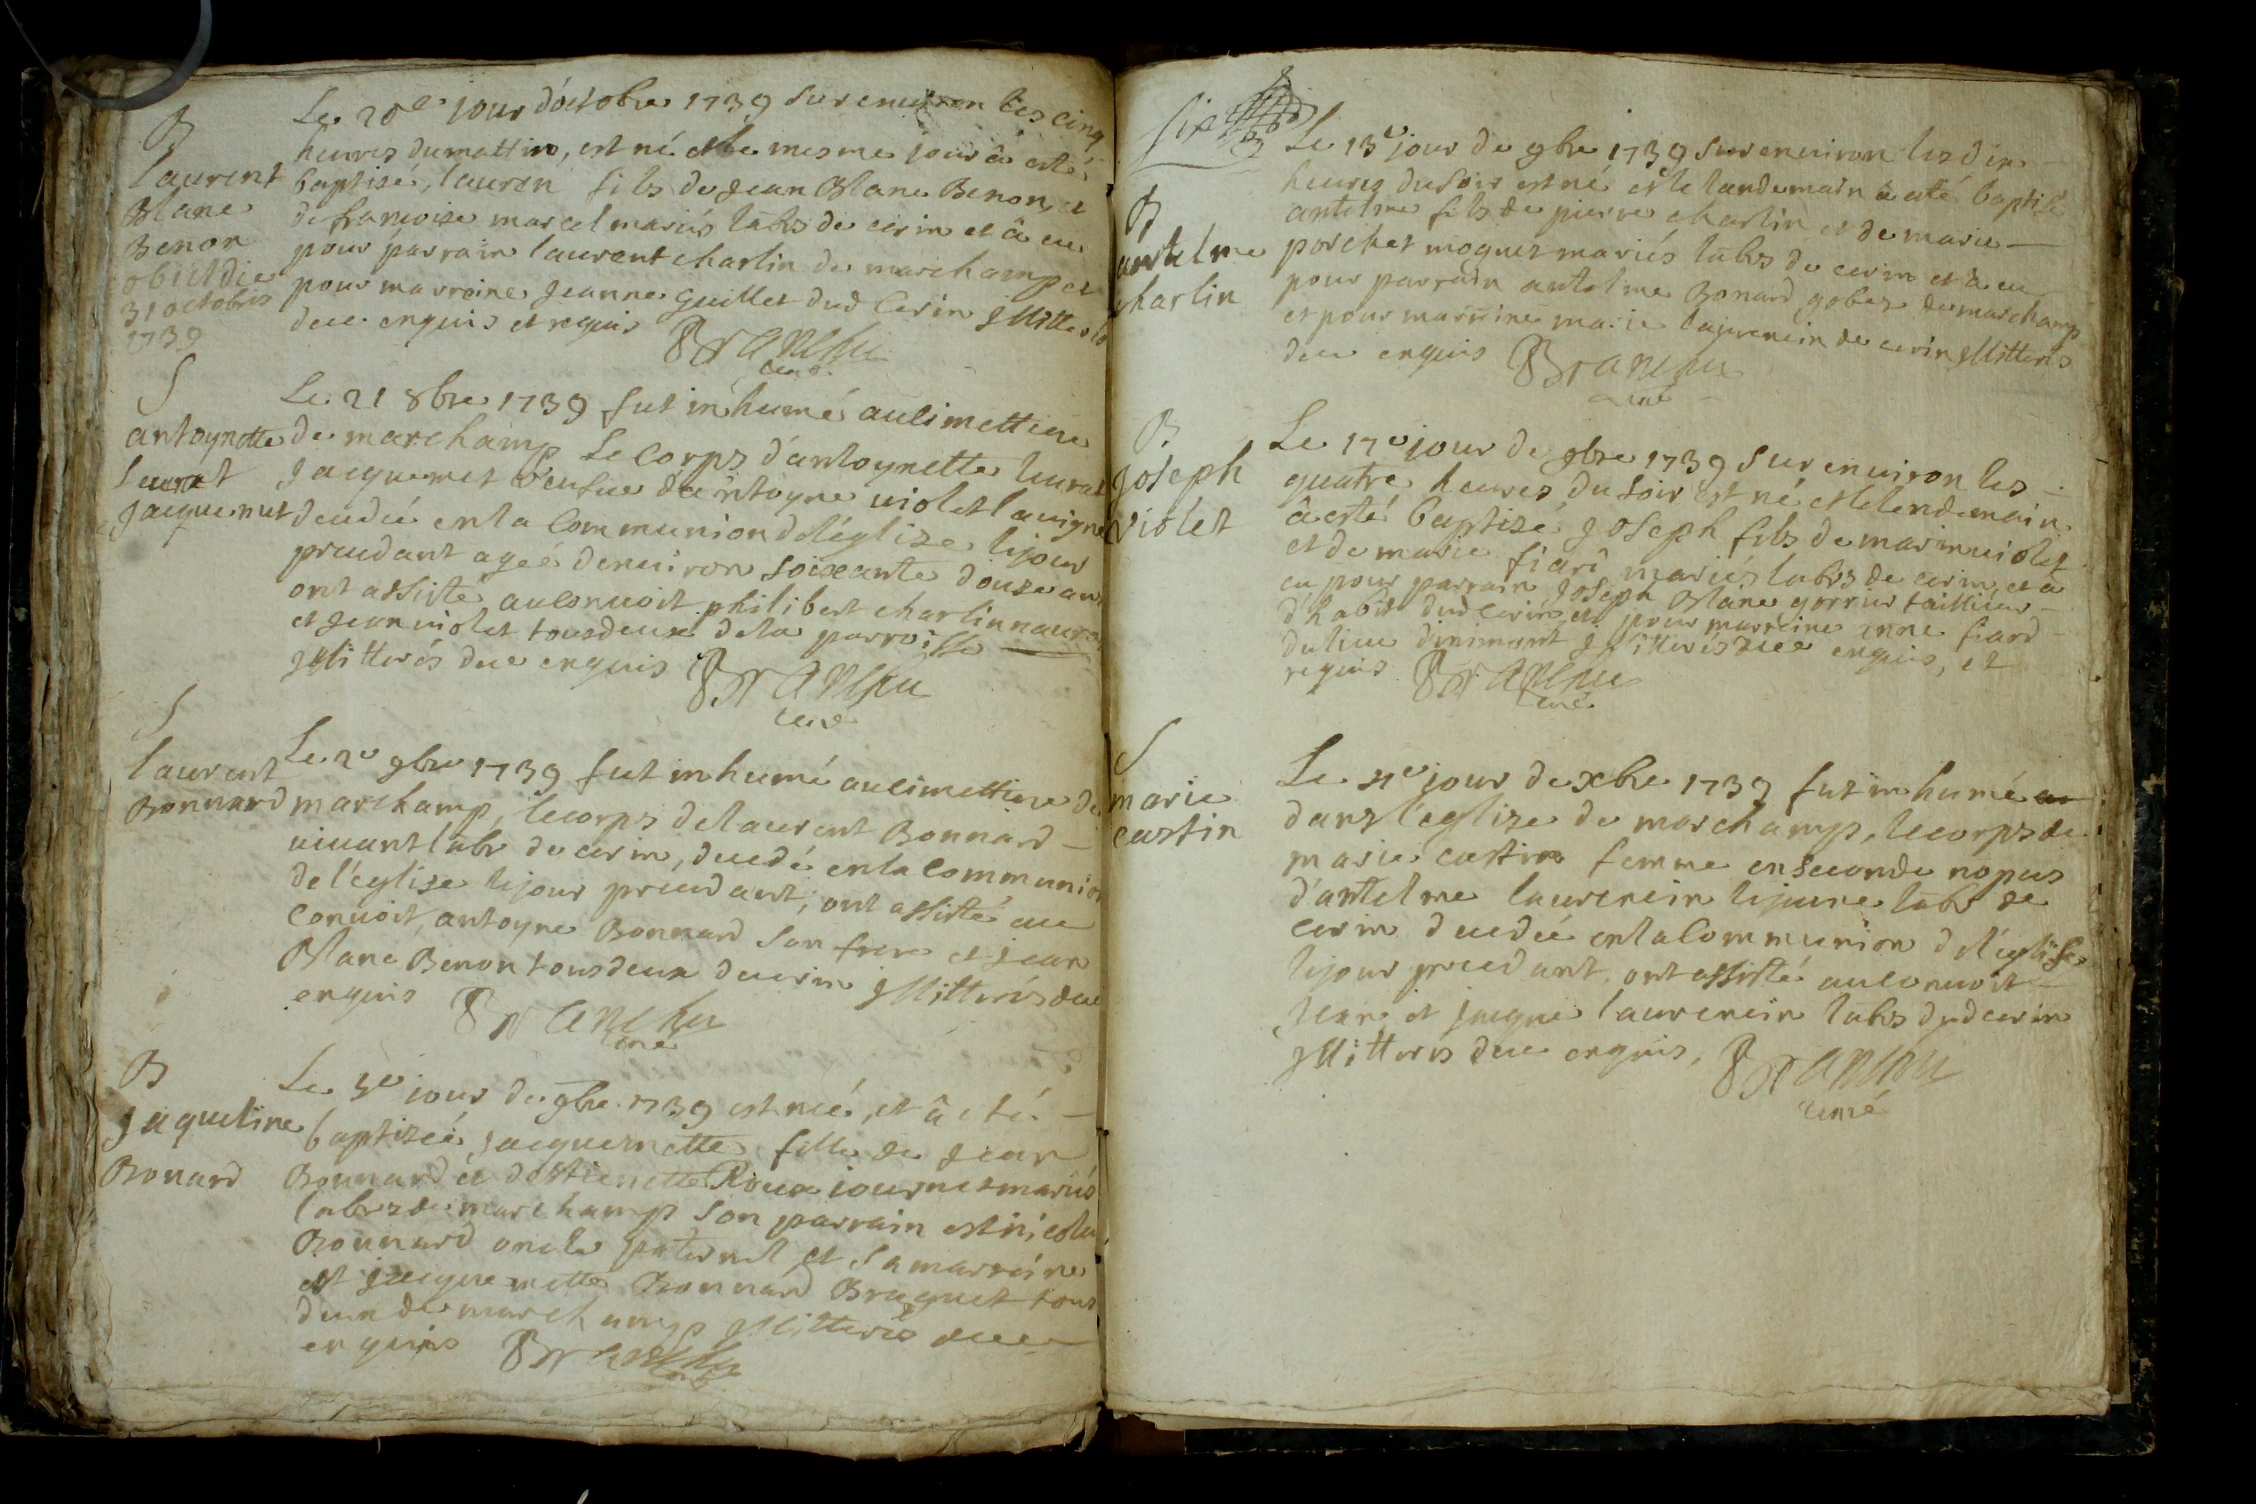 B
laurent
Blanc
Benon
obiit die
31 octobris
1739
Le 20e jour d'octobre 1739 sur environ les cinq
heures du mattin, est né et le mesme jour â esté
baptizé, lauren fils de Jean Blanc Benon, et
de francoise marcel mariés labrs de cerin et â eu
pour parrain laurent charlin de marchamp et
pour marraine Jeanne Guillet dud Cerin Jllitterés
de ce enquis et requis Branchu
curé
S
antoynette
leurat
Jaquemet
Le 21 8bre 1739 fut inhumé au cimettiere
de marchamp Le corps d'antoynette leurat
Jacquemet veufue d'antoyne violet lauigne
decedée en la Communion de l'églize le jour
precedant ageé d'enuiron soixante douze ans
ont assisté au conuoit philibert charlin
et Jean violet tous deux de la parroisse
Jllitterés de ce enquis Branchu
curé
S
laurent
Bonnard
Le 2e 9bre 1739 fut inhumé au cimettiere de
marchamp, le corps de laurent Bonnard
uiuant labr de cerin, decedé en la communion
de l'église le jour precedant, ont assisté au
conuoit, antoyne Bonnard son frere et Jean
Blanc Benon tous deux de cerin Jllitterés de ce
enquis Branchu
curé
B
Jaqueline
Bonard
Le 5e jour de 9bre 1739 est neé, et â eté
baptizeé, Jacquemette fille de Jean
Bonnard et d'Estiennette Roux journet mariés
labrs de marchamp son parrain est nicolas
Bonnard oncle paternel et sa marraine
est Jacquemette Bonnard Braquet tous
deux de marchamp Jllitterés de ce
enquis Branchu
curé
six
B
antelme
charlin
Le 13e jour de 9bre 1739 sur enuiron les dix
heures du soir est né et le landemain a eté baptisé
antelme fils de pierre charlin et de marie
porchet moquet mariés labrs de cerin et â eu
pour parrain antelme Bonard gobet de marchamp
et pour marraine marie laurencin de cerin Jllitterés
de ce enquis Branchu
curé
B
Joseph
violet
Le 17e jour de 9bre 1739 sur enuiron les
quatre heures du soir est né et le lendemain
â esté baptizé Joseph fils de marin uiolet
et de marie fiard mariés labrs de cerin et a
eu pour parrain Joseph Blanc gorrier tailleur
d'habit dud Cerin et pour marraine anne fiard
du lieu Jllitterés de ce enquis, et
requis Branchu
curé
S
marie
castin
Le 4e jour de xbre 1739 fut inhumé
dans l'eglize de marchamp, le corps de
marie castin femme en seconde nopces
d'antelme laurencin le jeune labr de
cerin decedeé en la Communion de l'église
le jour precedant, ont assisté au conuoit
Jean et Jacque laurencin labrs dud cerin
Jllitterés de ce enquis, Branchu
curé